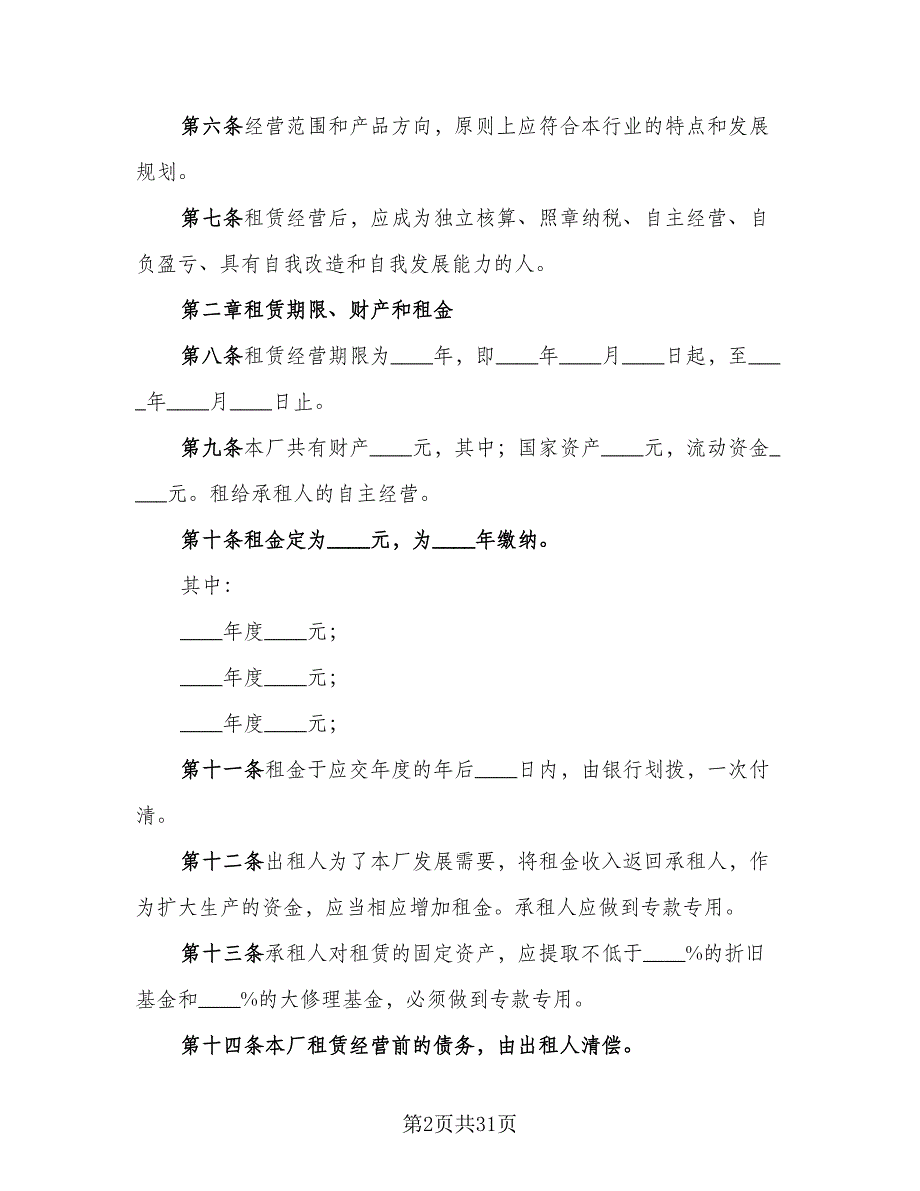 第六条经营范围和产品方向，原则上应符合本行业的特点和发展
规划。
第七条租赁经营后，应成为独立核算、照章纳税、自主经营、自
负盈亏、具有自我改造和自我发展能力的人。
第二章租赁期限、财产和租金
第八条租赁经营期限为____年，即____年____月____日起，至___
_年____月____日止。
第九条本厂共有财产____元，其中；国家资产____元，流动资金_
___元。租给承租人的自主经营。
第十条租金定为____元，为____年缴纳。
其中：
____年度____元；
____年度____元；
____年度____元；
第十一条租金于应交年度的年后____日内，由银行划拨，一次付
清。
第十二条出租人为了本厂发展需要，将租金收入返回承租人，作
为扩大生产的资金，应当相应增加租金。承租人应做到专款专用。
第十三条承租人对租赁的固定资产，应提取不低于____%的折旧
基金和____%的大修理基金，必须做到专款专用。
第十四条本厂租赁经营前的债务，由出租人清偿。
第2页共31页